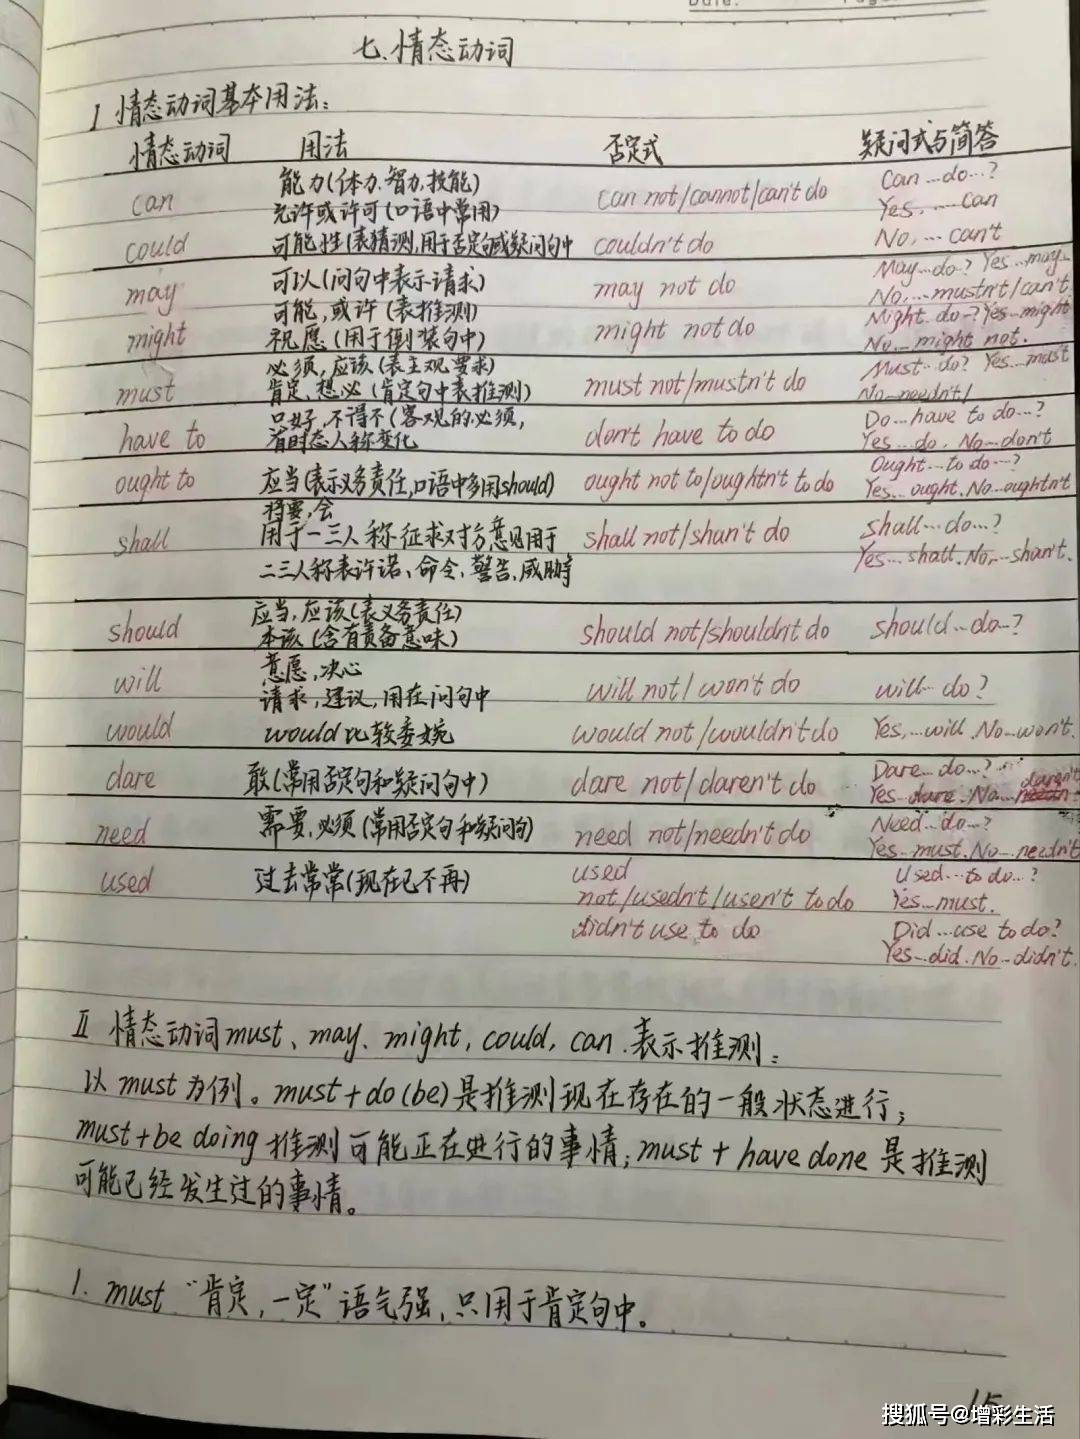 七.情态动词
I 情态动词基本用法:
情态动词 用法 否定式 疑问式与简答
can 能力(体力.智力.技能) can not/cannot/can't do Can...do...?
允许或许可(口语中常用) Yes, ....can
could 可能性(表猜测,用于否定句或疑问句中 couldn't do No, ... can't
may 可以(问句中表示请求) may not do May...do? Yes...may.
可能,或许(表推测) No....mustn't/can't.
might 祝愿(用于倒装句中) might not do Might.do-?Yes-might
No...might not.
must 必须,应该(表主观要求) must not/mustn't do Must...do? Yes...must
肯定、想必(肯定句中表推测) No-needn't/
have to 只好,不得不(客观的必须, don't have to do Do...have to do...?
有时态人称变化 Yes...do. No-don't
ought to 应当(表示义务责任,口语中多用should) ought not to/oughtn't to do Ought...to do...?
Yes...ought.No...oughtn't
shall 将要,会 shall not/shan't do shall...do...?
用于一三人称征求对方意见用于 Yes...shall.No,...shan't.
二三人称表许诺、命令、警告,威胁
should 应当,应该(表义务责任) should not/shouldn't do should...do-?
本该(含有责备意味)
will 意愿,决心 will not/won't do will...do?
请求,建议,用在问句中
would would比较委婉 would not/wouldn't do Yes,...will.No-won't.
dare 敢(常用否定句和疑问句中) dare not/daren't do Dare...do...?
Yes-dare.No...daren't
need 需要,必须(常用否定句和疑问句) need not/needn't do Need...do...?
Yes-must.No...needn't
used 过去常常(现在已不再) used Used...to do...?
not/usedn't/usen't to do Yes...must.
didn't use to do Did...use to do?
Yes-did.No-didn't.
II 情态动词must、may、might,could,can.表示推测:
以must为例。must+do(be)是推测现在存在的一般状态进行;
must+be doing推测可能正在进行的事情;must+have done是推测
可能已经发生过的事情。
1. must "肯定,一定"语气强,只用于肯定句中。
15
搜狐号@增彩生活